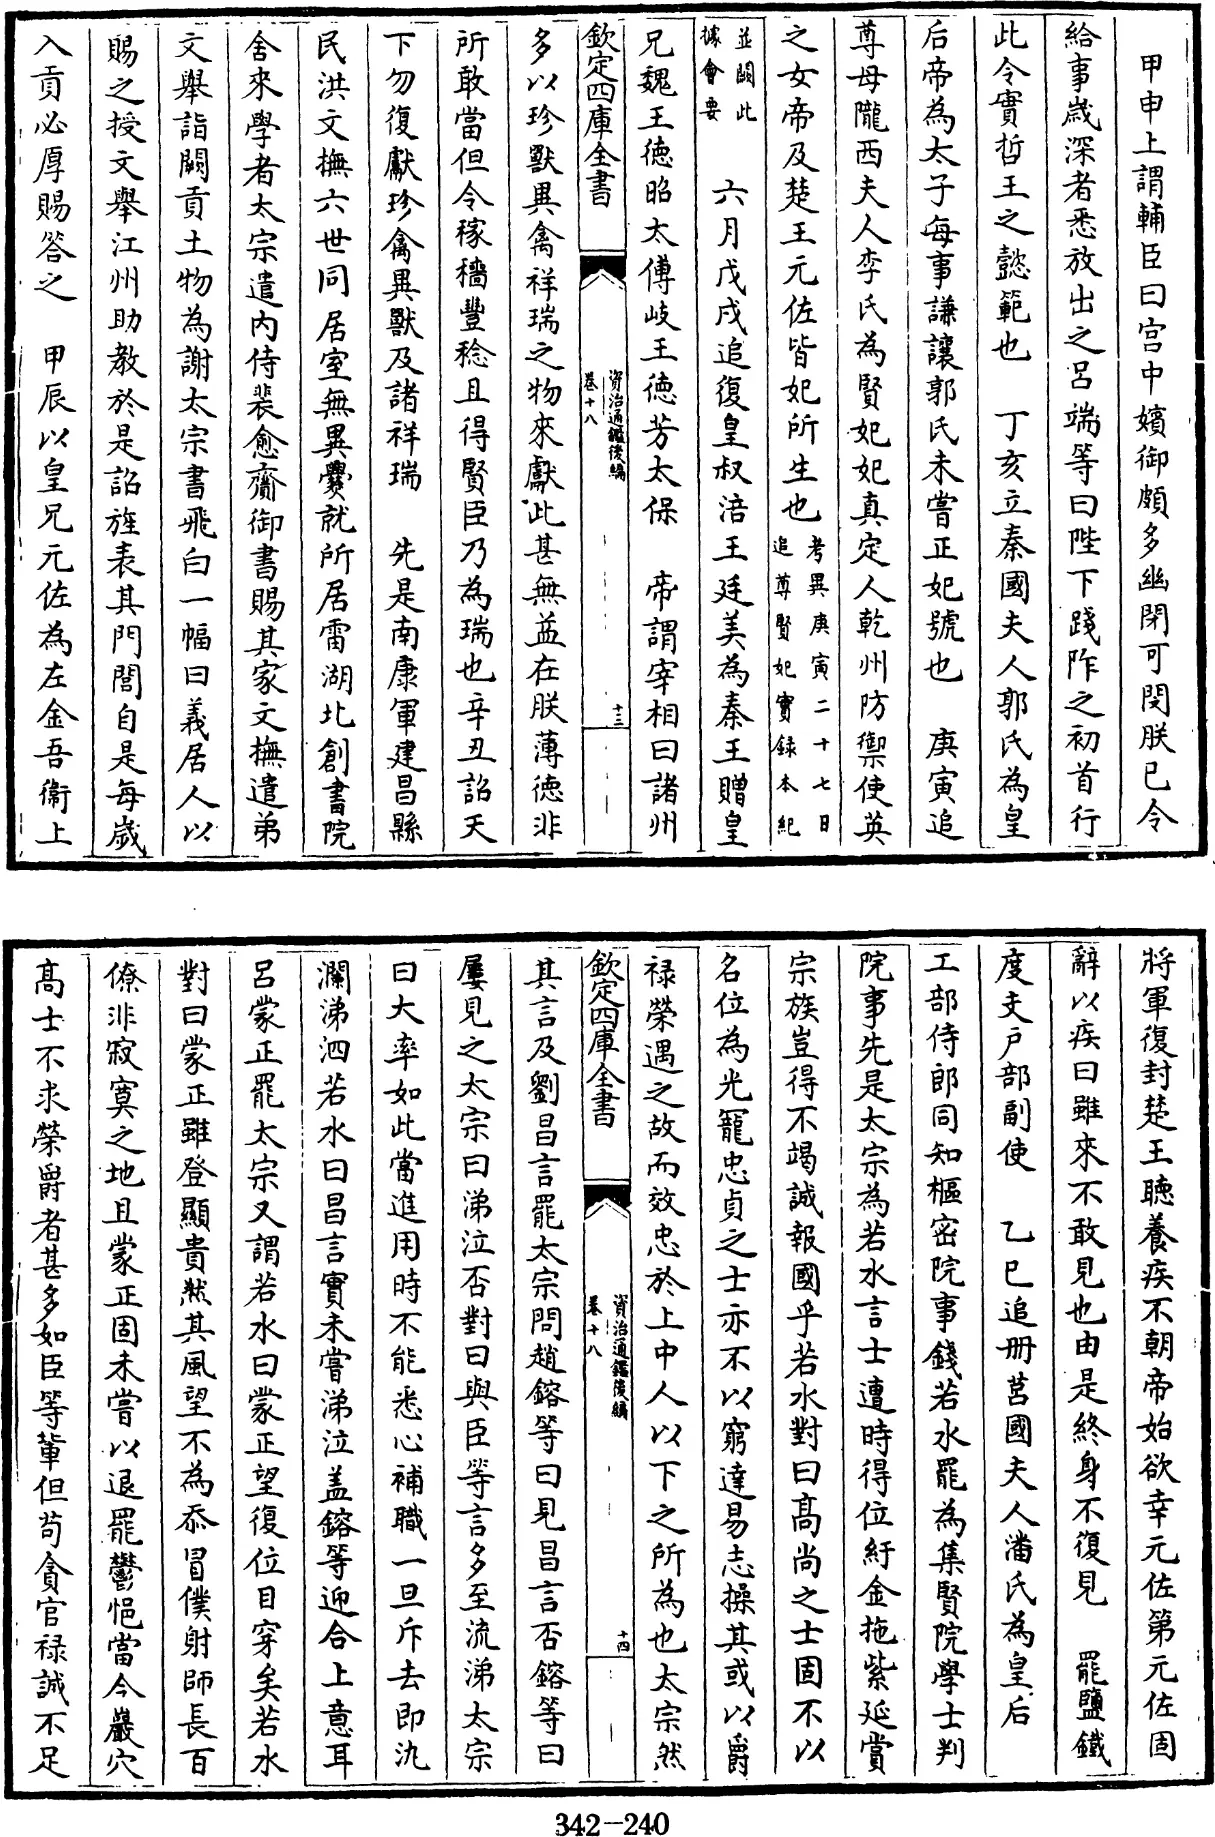 甲申上謂輔臣曰宫中嬪御頗多幽閉可閔朕已令
給事歲深者悉放出之吕端等曰陛下踐阼之初首行
此令實哲王之懿範也　丁亥立秦國夫人郭氏為皇
后帝為太子每事謙讓郭氏未嘗正妃號也　庚寅追
尊母隴西夫人李氏為賢妃妃真定人乾州防禦使英
之女帝及楚王元佐皆妃所生也考異庚寅二十七日
追尊賢妃實録本紀
並闕此
據會要　六月戊戌追復皇叔涪王廷美為秦王贈皇
兄魏王德昭太傅岐王德芳太保　帝謂宰相曰諸州
欽定四庫全書
資治通鑑後編
卷十八
十三
多以珍獸異禽祥瑞之物來獻此甚無益在朕薄德非
所敢當但令稼穡豐稔且得賢臣乃為瑞也辛丑詔天
下勿復獻珍禽異獸及諸祥瑞　先是南康軍建昌縣
民洪文撫六世同居室無異爨就所居雷湖北創書院
舍來學者太宗遣内侍裴愈齎御書賜其家文撫遣弟
文舉詣闕貢土物為謝太宗書飛白一幅曰義居人以
賜之授文舉江州助教於是詔旌表其門閭自是每歲
入貢必厚賜答之　甲辰以皇兄元佐為左金吾衛上
將軍復封楚王聽養疾不朝帝始欲幸元佐第元佐固
辭以疾曰雖來不敢見也由是終身不復見　罷鹽鐵
度支户部副使　乙巳追册莒國夫人潘氏為皇后
工部侍郎同知樞密院事錢若水罷為集賢院學士判
院事先是太宗為若水言士遭時得位紆金拖紫延賞
宗族豈得不竭誠報國乎若水對曰高尚之士固不以
名位為光寵忠貞之士亦不以窮達易志操其或以爵
禄榮遇之故而效忠於上中人以下之所為也太宗然
欽定四庫全書
資治通鑑後編
卷十八
十四
其言及劉昌言罷太宗問趙鎔等曰見昌言否鎔等曰
屢見之太宗曰涕泣否對曰與臣等言多至流涕太宗
曰大率如此當進用時不能悉心補職一旦斥去即汍
瀾涕泗若水曰昌言實未嘗涕泣盖鎔等迎合上意耳
吕蒙正罷太宗又謂若水曰蒙正望復位目穿矣若水
對曰蒙正雖登顯貴然其風望不為忝冒僕射師長百
僚非寂寞之地且蒙正固未嘗以退罷鬱悒當今巖穴
高士不求榮爵者甚多如臣等輩但苟貪官禄誠不足
342-240